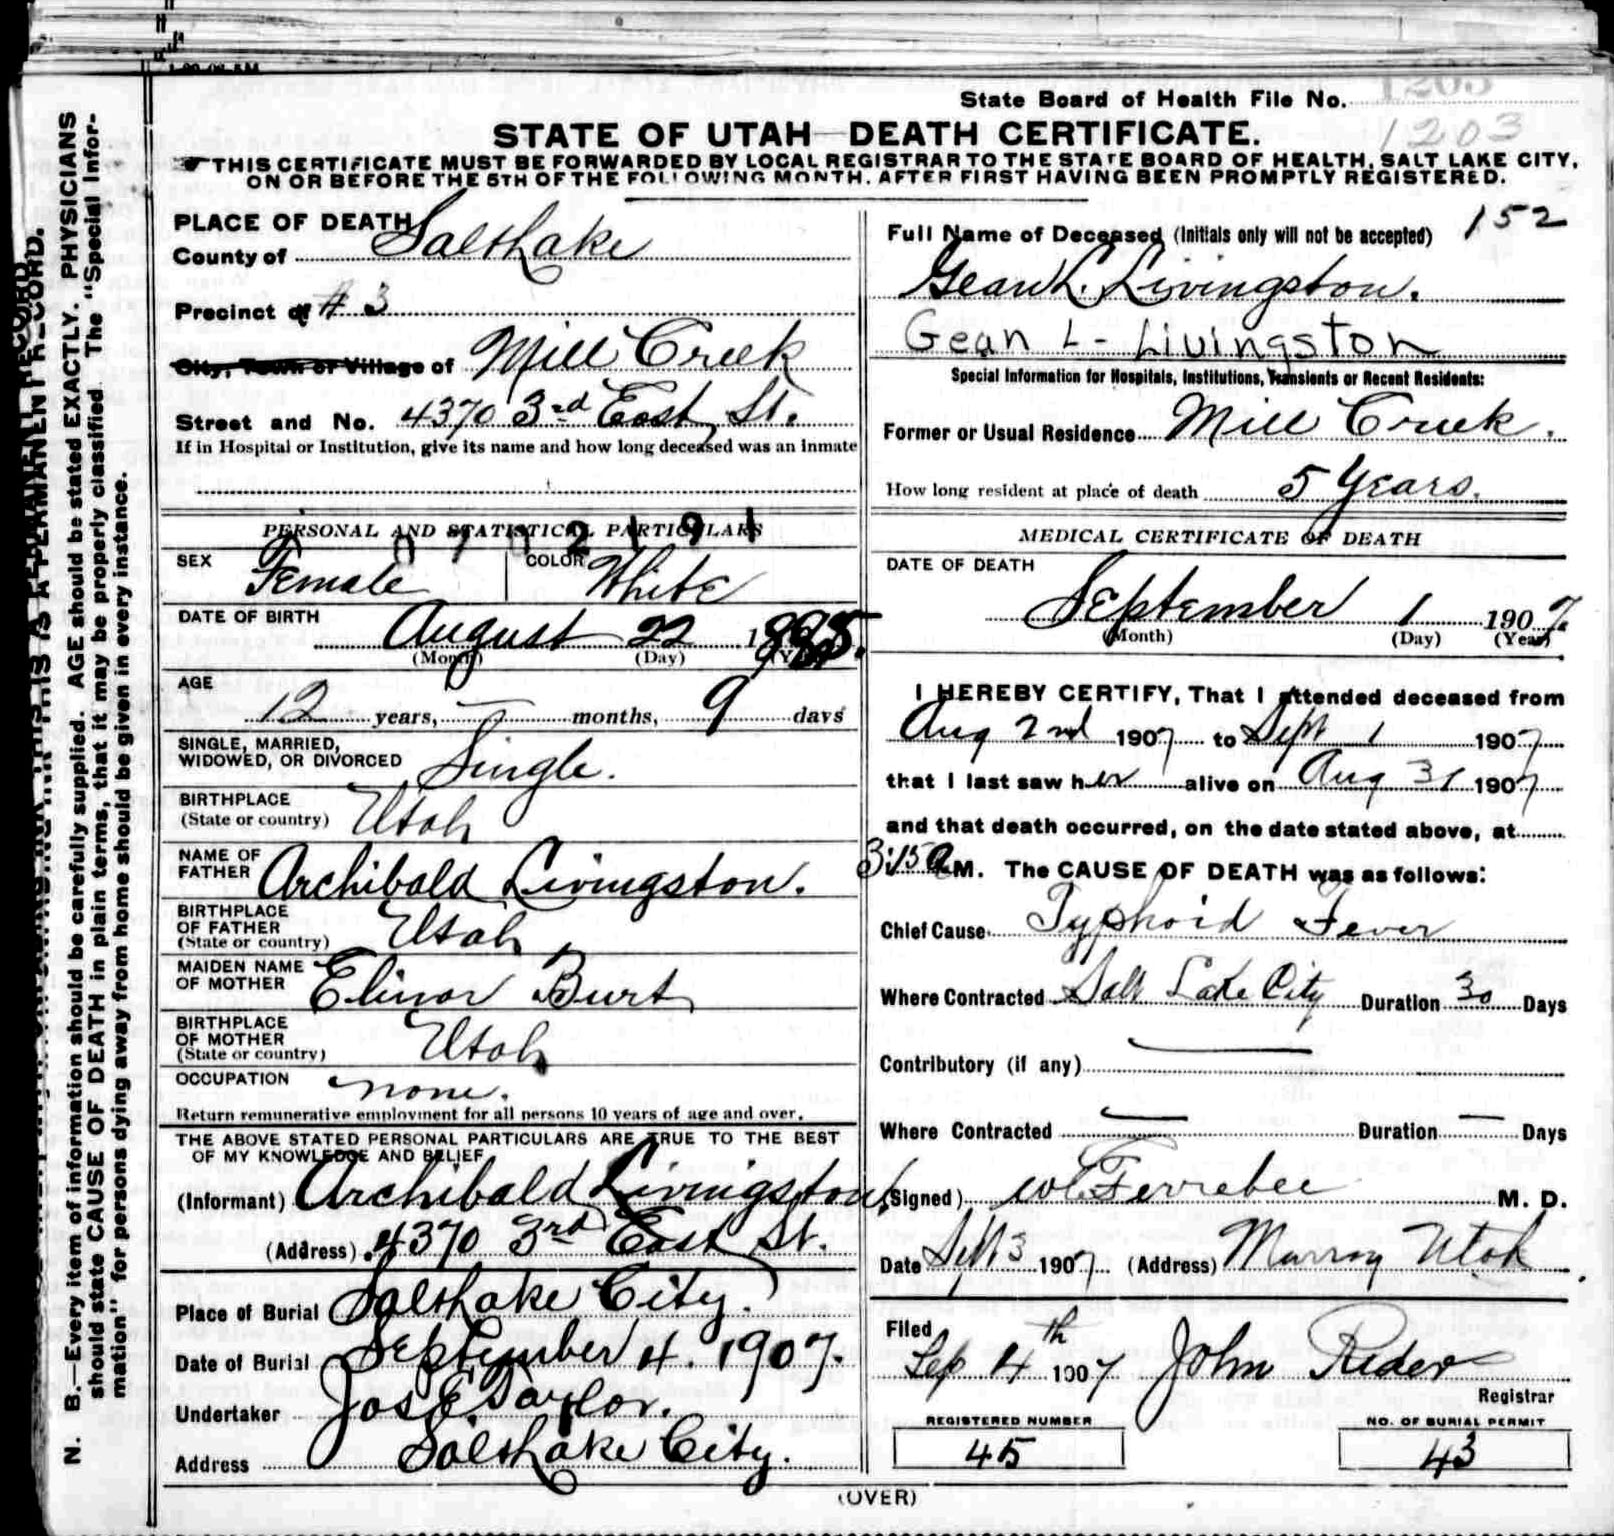 State Board of Health File No. 1203
1203
STATE OF UTAH—DEATH CERTIFICATE.
THIS CERTIFICATE MUST BE FORWARDED BY LOCAL REGISTRAR TO THE STATE BOARD OF HEALTH, SALT LAKE CITY,
ON OR BEFORE THE 5TH OF THE FOLLOWING MONTH, AFTER FIRST HAVING BEEN PROMPTLY REGISTERED.
N. B.—Every item of information should be carefully supplied. AGE should be stated EXACTLY. PHYSICIANS
should state CAUSE OF DEATH in plain terms, that it may be properly classified. The "Special Infor-
mation" for persons dying away from home should be given in every instance.
THIS IS A PERMANENT RECORD.
PLACE OF DEATH
County of Salt Lake
Precinct of # 3
City, Town or Village of Mill Creek
Street and No. 4370 3rd East St.
If in Hospital or Institution, give its name and how long deceased was an inmate
PERSONAL AND STATISTICAL PARTICULARS
2191
SEX Female COLOR White
DATE OF BIRTH August 22 1895.
(Month) (Day) (Year)
AGE
12 years, — months, 9 days
SINGLE, MARRIED,
WIDOWED, OR DIVORCED Single.
BIRTHPLACE
(State or country) Utah
NAME OF
FATHER Archibald Livingston.
BIRTHPLACE
OF FATHER
(State or country) Utah
MAIDEN NAME
OF MOTHER Elinor Burt
BIRTHPLACE
OF MOTHER
(State or country) Utah
OCCUPATION none.
Return remunerative employment for all persons 10 years of age and over.
THE ABOVE STATED PERSONAL PARTICULARS ARE TRUE TO THE BEST
OF MY KNOWLEDGE AND BELIEF
(Informant) Archibald Livingston.
(Address) 4370 3rd East St.
Place of Burial Salt Lake City.
Date of Burial September 4. 1907.
Undertaker Jos E Taylor.
Address Salt Lake City.
Full Name of Deceased (Initials only will not be accepted) 152
Gean L. Livingston.
Gean L- Livingston
Special Information for Hospitals, Institutions, Transients or Recent Residents:
Former or Usual Residence Mill Creek.
How long resident at place of death 5 Years.
MEDICAL CERTIFICATE OF DEATH
DATE OF DEATH
September 1 1907.
(Month) (Day) (Year)
I HEREBY CERTIFY, That I attended deceased from
Aug 2nd 1907 to Sept 1 1907
that I last saw her alive on Aug 31 1907
and that death occurred, on the date stated above, at
3:15 A M. The CAUSE OF DEATH was as follows:
Chief Cause Typhoid Fever
Where Contracted Salt Lake City Duration 30 Days
Contributory (if any) —
Where Contracted — Duration — Days
(Signed) W C Ferrebee M. D.
Date Sept 3 1907 (Address) Murray Utah
Filed
Sep 4th 1907 John Rider
Registrar
REGISTERED NUMBER NO. OF BURIAL PERMIT
45 43
(OVER)